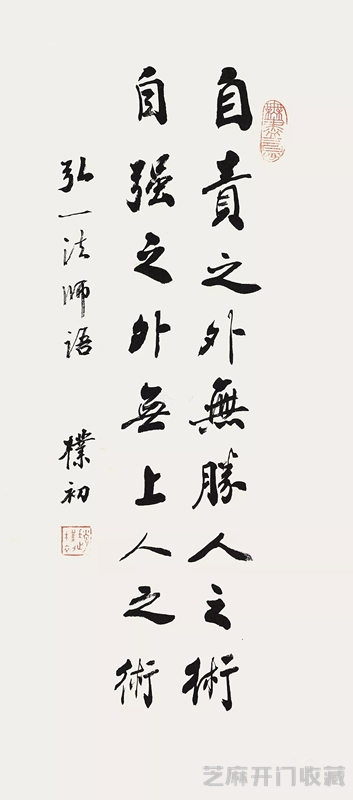 自責之外無勝人之術
自强之外無上人之術
弘一法师語 樸初
芝麻开门收藏